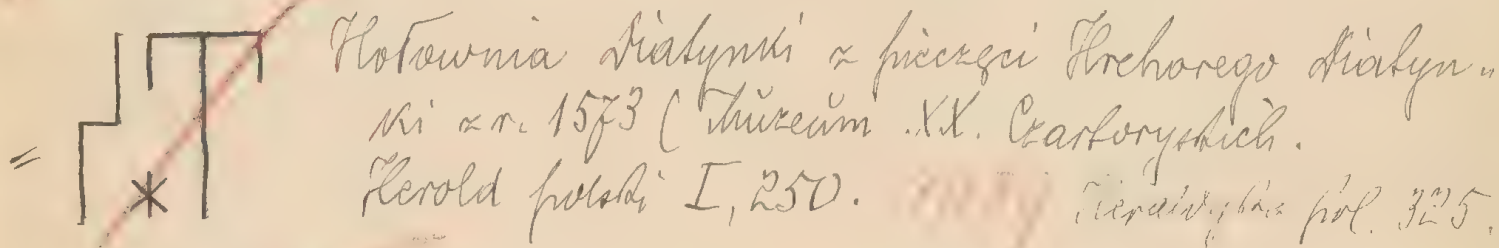 Hołownia Diatynki z pieczęci Hrehorego Diatyn„
ki z r. 1573 (Muzeum XX. Czartoryskich.
Herold polski I, 250. pol. 325.